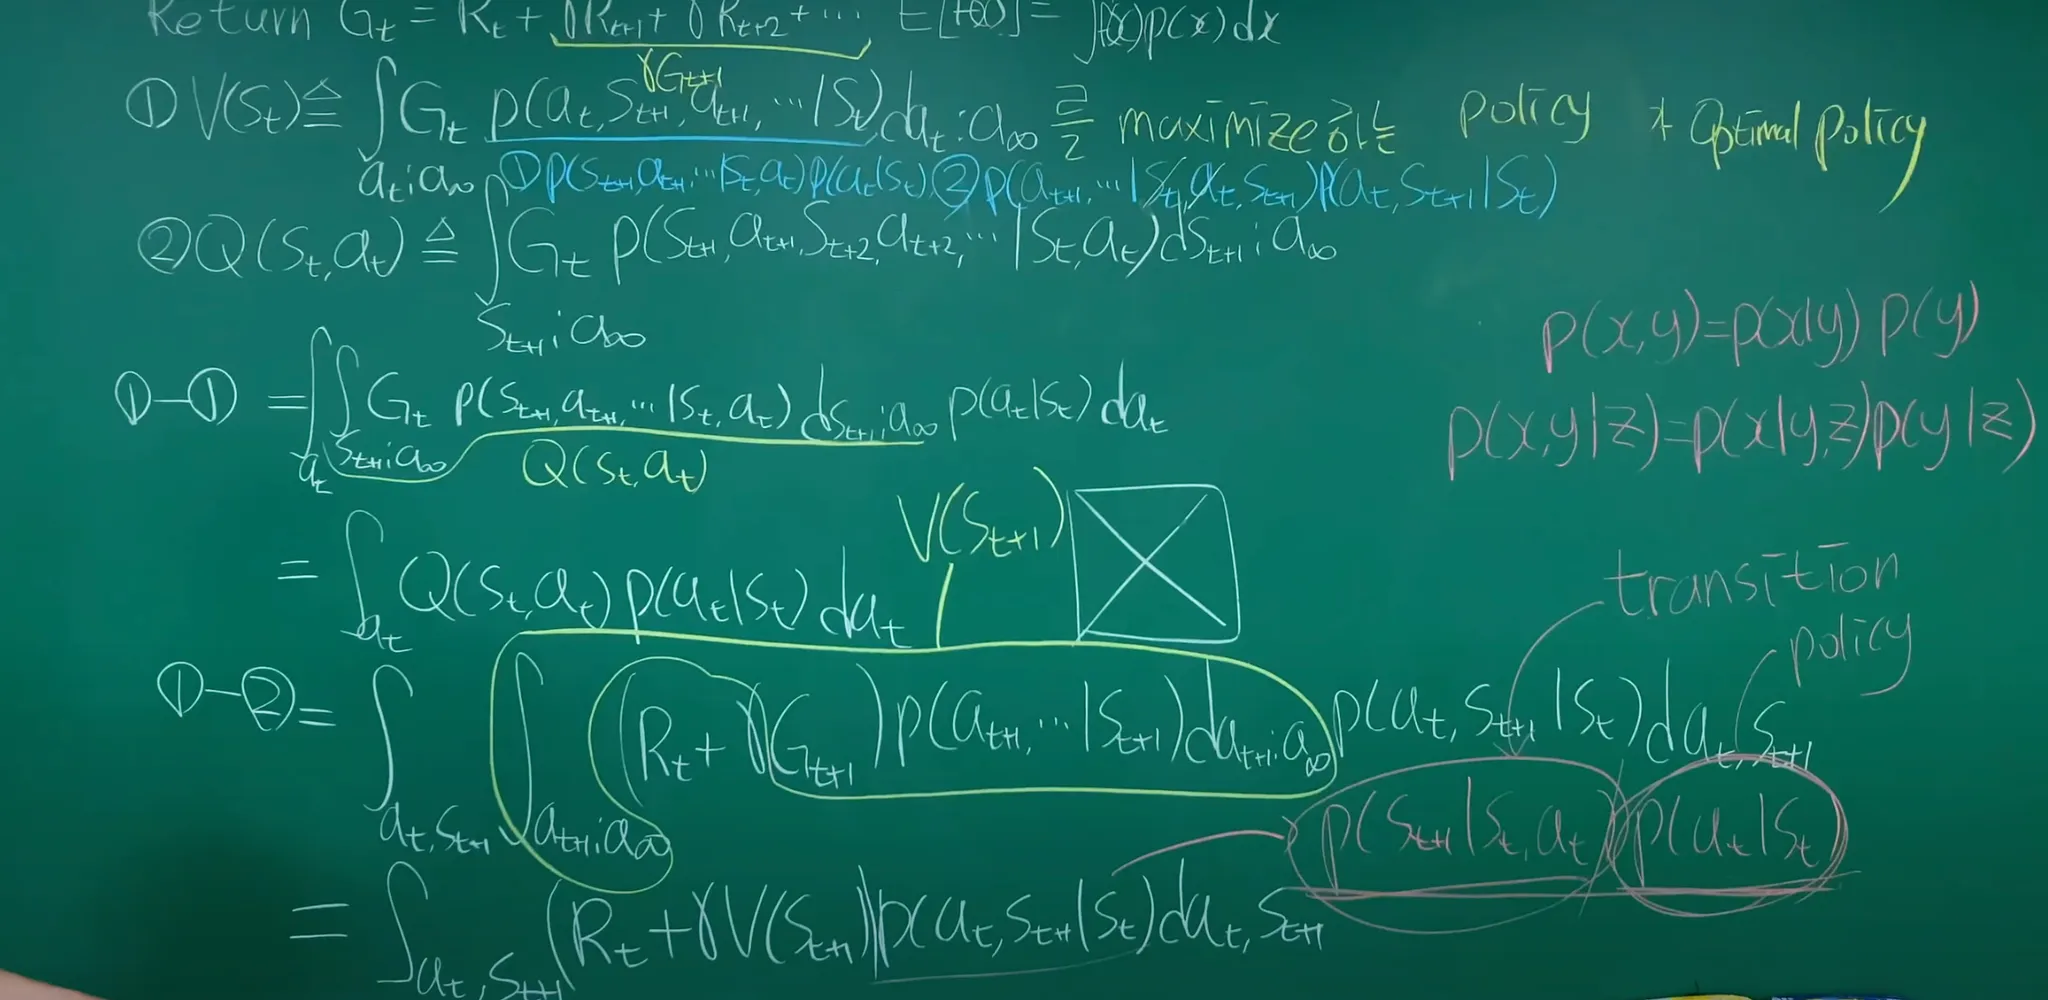 Return G_t = R_t + γR_{t+1} + γR_{t+2} + ⋯ E[f(x)] = ∫f(x)p(x)dx
γG_{t+1}
① V(S_t) ≜ ∫_{a_t:a_∞} G_t p(a_t, S_{t+1}, a_{t+1}, ⋯ | S_t) da_t:a_∞ 를 maximize 하는 policy * Optimal policy
① p(S_{t+1}, a_{t+1}, ⋯ | S_t, a_t) p(a_t | S_t) ② p(a_{t+1}, ⋯ | S_t, a_t, S_{t+1}) p(a_t, S_{t+1} | S_t)
② Q(S_t, a_t) ≜ ∫_{S_{t+1}:a_∞} G_t p(S_{t+1}, a_{t+1}, S_{t+2}, a_{t+2}, ⋯ | S_t, a_t) dS_{t+1}:a_∞
p(x,y)=p(x|y) p(y)
①–① = ∫_{a_t} ∫_{S_{t+1}:a_∞} G_t p(S_{t+1}, a_{t+1}, ⋯ | S_t, a_t) dS_{t+1}:a_∞ p(a_t | S_t) da_t
p(x,y|z)=p(x|y,z)p(y|z)
Q(S_t, a_t)
V(S_{t+1})
= ∫_{a_t} Q(S_t, a_t) p(a_t | S_t) da_t
transition
policy
①–② = ∫_{a_t, S_{t+1}} ∫_{a_{t+1}:a_∞} (R_t + γG_{t+1}) p(a_{t+1}, ⋯ | S_{t+1}) da_{t+1}:a_∞ p(a_t, S_{t+1} | S_t) da_t, S_{t+1}
p(S_{t+1} | S_t, a_t) p(a_t | S_t)
= ∫_{a_t, S_{t+1}} (R_t + γV(S_{t+1})) p(a_t, S_{t+1} | S_t) da_t, S_{t+1}